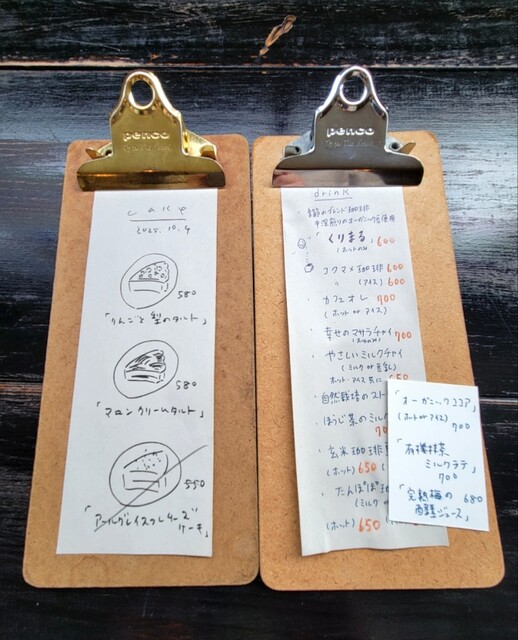 penco
cake
2025.10.4
580
「りんごと梨のタルト」
580
「マロンクリームタルト」
550
「アールグレイスフレチーズ
ケーキ」
penco
drink
季節のブレンド珈琲
中深煎りのオーガニック豆使用
「くりまる」600
(ホットのみ)
・コクマメ珈琲 600
〃 (アイス) 600
・カフェオレ 700
(ホット or アイス)
・幸せのマサラチャイ 700
(ホットのみ)
・やさしいミルクチャイ
(ミルク or 豆乳)
ホット・アイス共に 650
・自然栽培のスト
・ほうじ茶のミルク
70
・玄米珈琲
(ホット) 650 (
・たんぽぽ
(ミルク
(ホット) 650
「オーガニックココア」
(ホット or アイス)
700
「有機抹茶
ミルクラテ」
700
「完熟梅の 680
酵素ジュース」